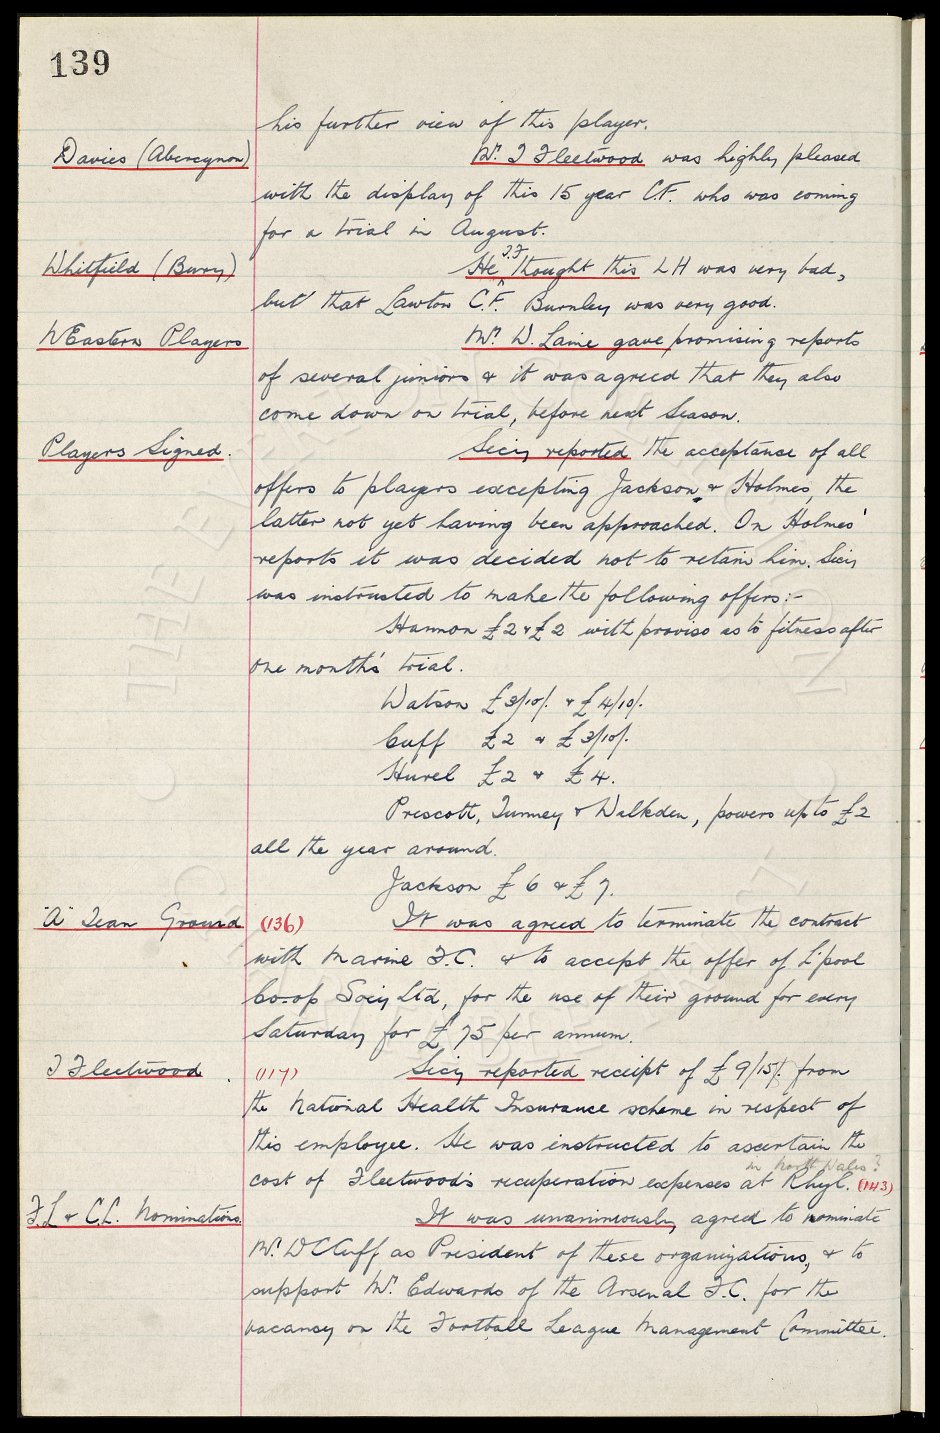 139
his further view of this player.
Davies (Abercynon) Mr. T Fleetwood was highly pleased
with the display of this 15 year C.F. who was coming
for a trial in August.
T.F
Whitfield (Bury) He thought this LH was very bad,
but that Lawton C.F. Burnley was very good.
N Eastern Players Mr. W. Laine gave promising reports
of several juniors & it was agreed that they also
come down on trial, before next Season.
Players Signed. Secy reported the acceptance of all
offers to players excepting Jackson & Holmes, the
latter not yet having been approached. On Holmes'
reports it was decided not to retain him. Secy
was instructed to make the following offers:-
Hannon £2 & £2 with proviso as to fitness after
one month's trial.
Watson £3/10/. & £4/10/.
Cuff £2 & £3/10/.
Hurel £2 & £4.
Prescott, Tunney & Walkden, powers up to £2
all the year around.
Jackson £6 & £7.
"A" Team Ground (136) It was agreed to terminate the contract
with Marine F.C. & to accept the offer of L'pool
Co-op Socy Ltd, for the use of their ground for every
Saturday for £75 per annum.
T Fleetwood. (117) Secy reported receipt of £9/15/. from
the National Health Insurance scheme in respect of
this employee. He was instructed to ascertain the
in North Wales?
cost of Fleetwood's recuperation expenses at Rhyl. (143)
F.L & C.L. Nominations. It was unanimously agreed to nominate
Mr. W C Cuff as President of these organizations, & to
support Mr. Edwards of the Arsenal F.C. for the
vacancy on the Football League Management Committee.